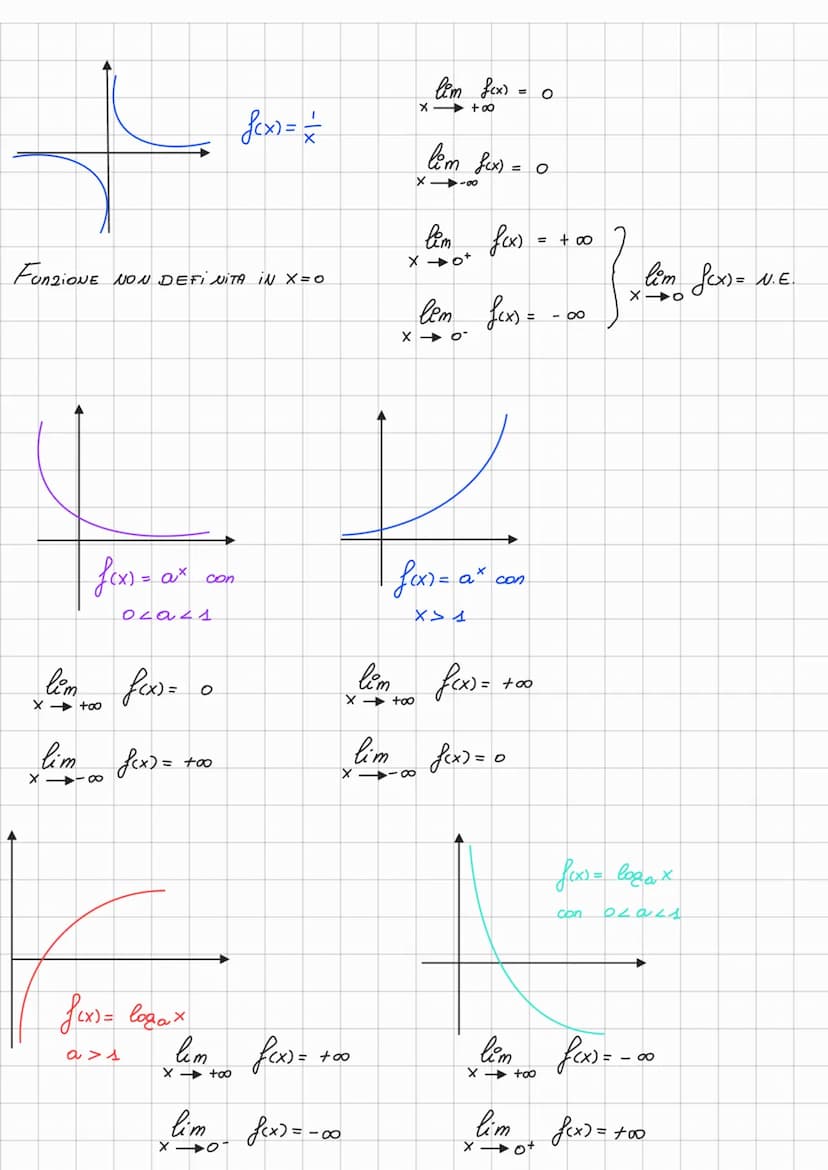 f(x) = 1/x
lim x → +∞ f(x) = 0
lim x → -∞ f(x) = 0
lim x → 0⁺ f(x) = + ∞
lim x → 0⁻ f(x) = - ∞
} lim x → 0 f(x) = N.E.
FUNZIONE NON DEFINITA IN X=0
f(x) = aˣ con
0 < a < 1
f(x) = aˣ con
x > 1
lim x → +∞ f(x) = 0
lim x → -∞ f(x) = +∞
lim x → +∞ f(x) = +∞
lim x → -∞ f(x) = 0
f(x) = logₐ x
a > 1
lim x → +∞ f(x) = +∞
lim x → 0⁻ f(x) = -∞
f(x) = logₐ x
con 0 < a < 1
lim x → +∞ f(x) = - ∞
lim x → 0⁺ f(x) = +∞